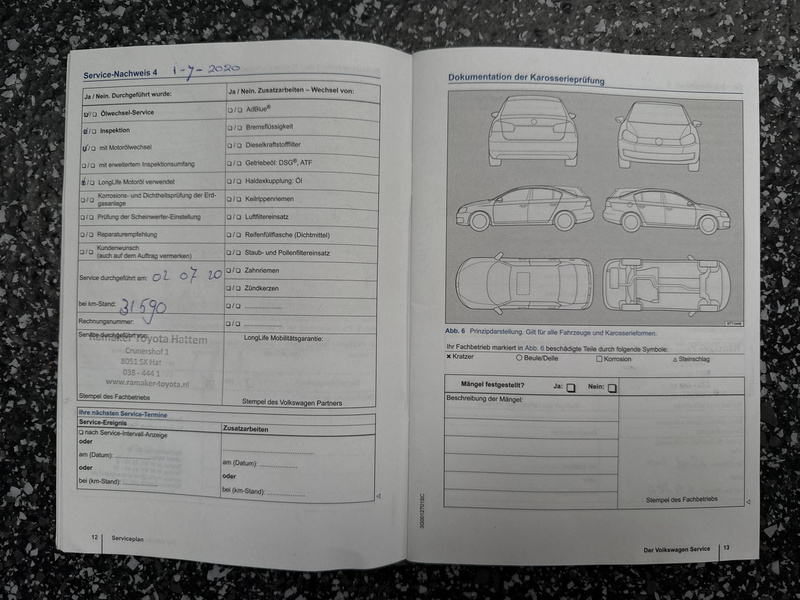 Service-Nachweis 4 1-7-2020
Ja / Nein. Durchgeführt wurde:
Ölwechsel-Service
Inspektion
mit Motorölwechsel
mit erweitertem Inspektionsumfang
LongLife Motoröl verwendet
Korrosions- und Dichtheitsprüfung der Erd-
gasanlage
Prüfung der Scheinwerfer-Einstellung
Reparaturempfehlung
Kundenwunsch
(auch auf dem Auftrag vermerken)
Service durchgeführt am: 02 07 20
bei km-Stand: 31590
Rechnungsnummer:
Service durchgeführt von:
Ramaker Toyota Hattem
Crunershof 1
8051 SX Hat
038 - 444 1
www.ramaker-toyota.nl
Stempel des Fachbetriebs
Ja / Nein. Zusatzarbeiten – Wechsel von:
AdBlue®
Bremsflüssigkeit
Dieselkraftstofffilter
Getriebeöl: DSG®, ATF
Haldexkupplung: Öl
Keilrippenriemen
Luftfiltereinsatz
Reifenfüllflasche (Dichtmittel)
Staub- und Pollenfiltereinsatz
Zahnriemen
Zündkerzen
LongLife Mobilitätsgarantie:
Stempel des Volkswagen Partners
Ihre nächsten Service-Termine
Service-Ereignis
nach Service-Intervall-Anzeige
oder
am (Datum):
oder
bei (km-Stand):
Zusatzarbeiten
am (Datum):
oder
bei (km-Stand):
12 Serviceplan
Dokumentation der Karosserieprüfung
Abb. 6 Prinzipdarstellung. Gilt für alle Fahrzeuge und Karosserieformen.
Ihr Fachbetrieb markiert in Abb. 6 beschädigte Teile durch folgende Symbole:
Kratzer Beule/Delle Korrosion Steinschlag
Mängel festgestellt? Ja: Nein:
Beschreibung der Mängel:
Stempel des Fachbetriebs
Der Volkswagen Service 13